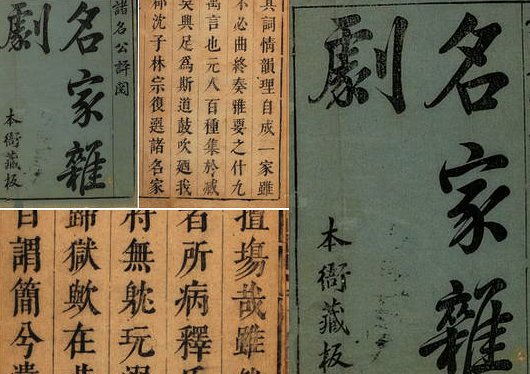 諸名公評閱
名家雜
劇
本衙藏板
具詞情韻理自成一家雖
不必曲終奏雅要之什九
寓言也元人百種集於臧
吳興足爲斯道鼓吹廼我
沈子林宗復選諸名家
塲哉雖
者所病釋
無躭玩
歸獄歟在
自謂簡兮
名家雜
劇
本衙藏板